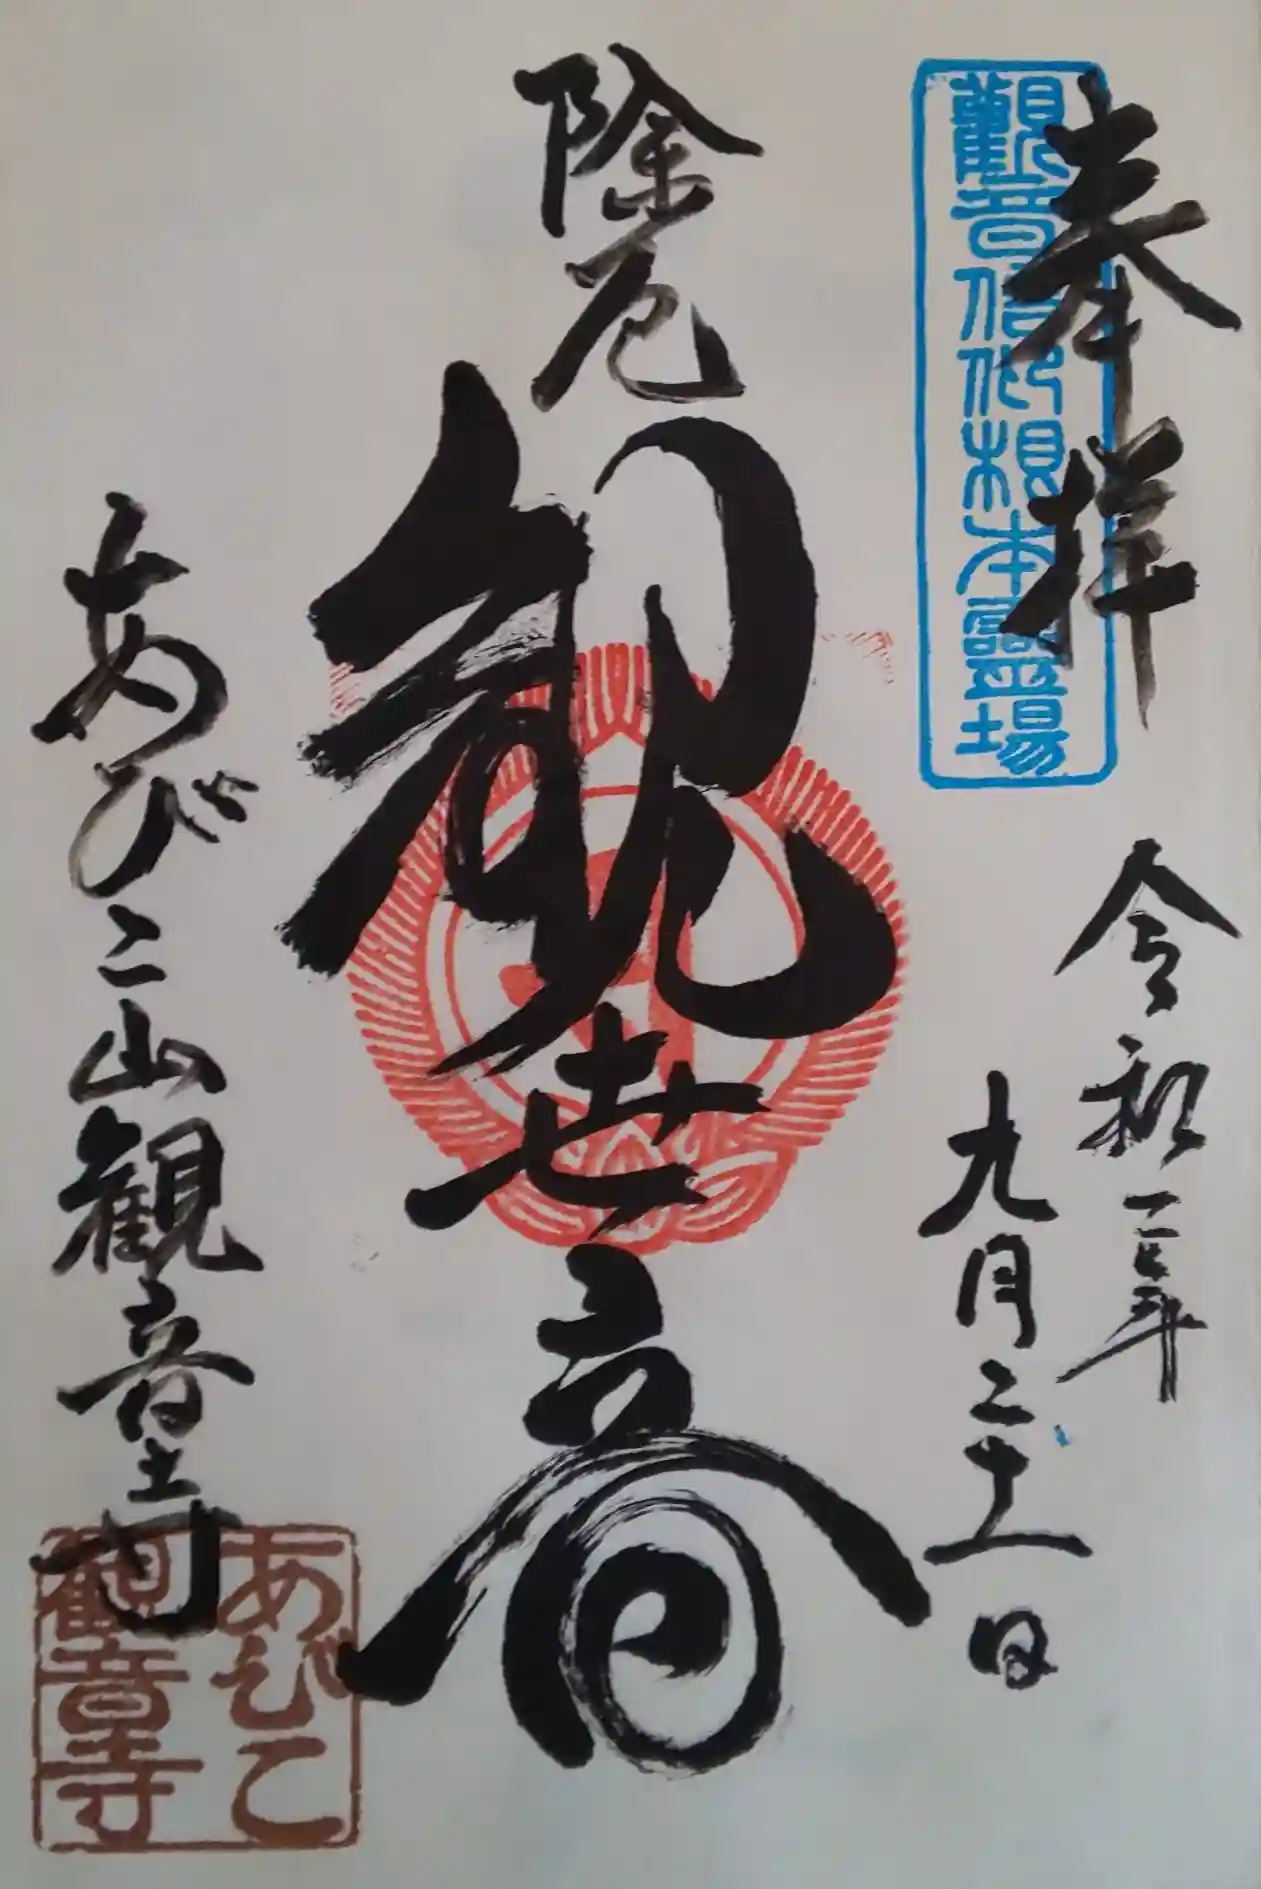 奉拝
觀音信仰根本靈場
令和三年
九月二十一日
除厄
観世音
あびこ山観音寺
あびこ
観音寺